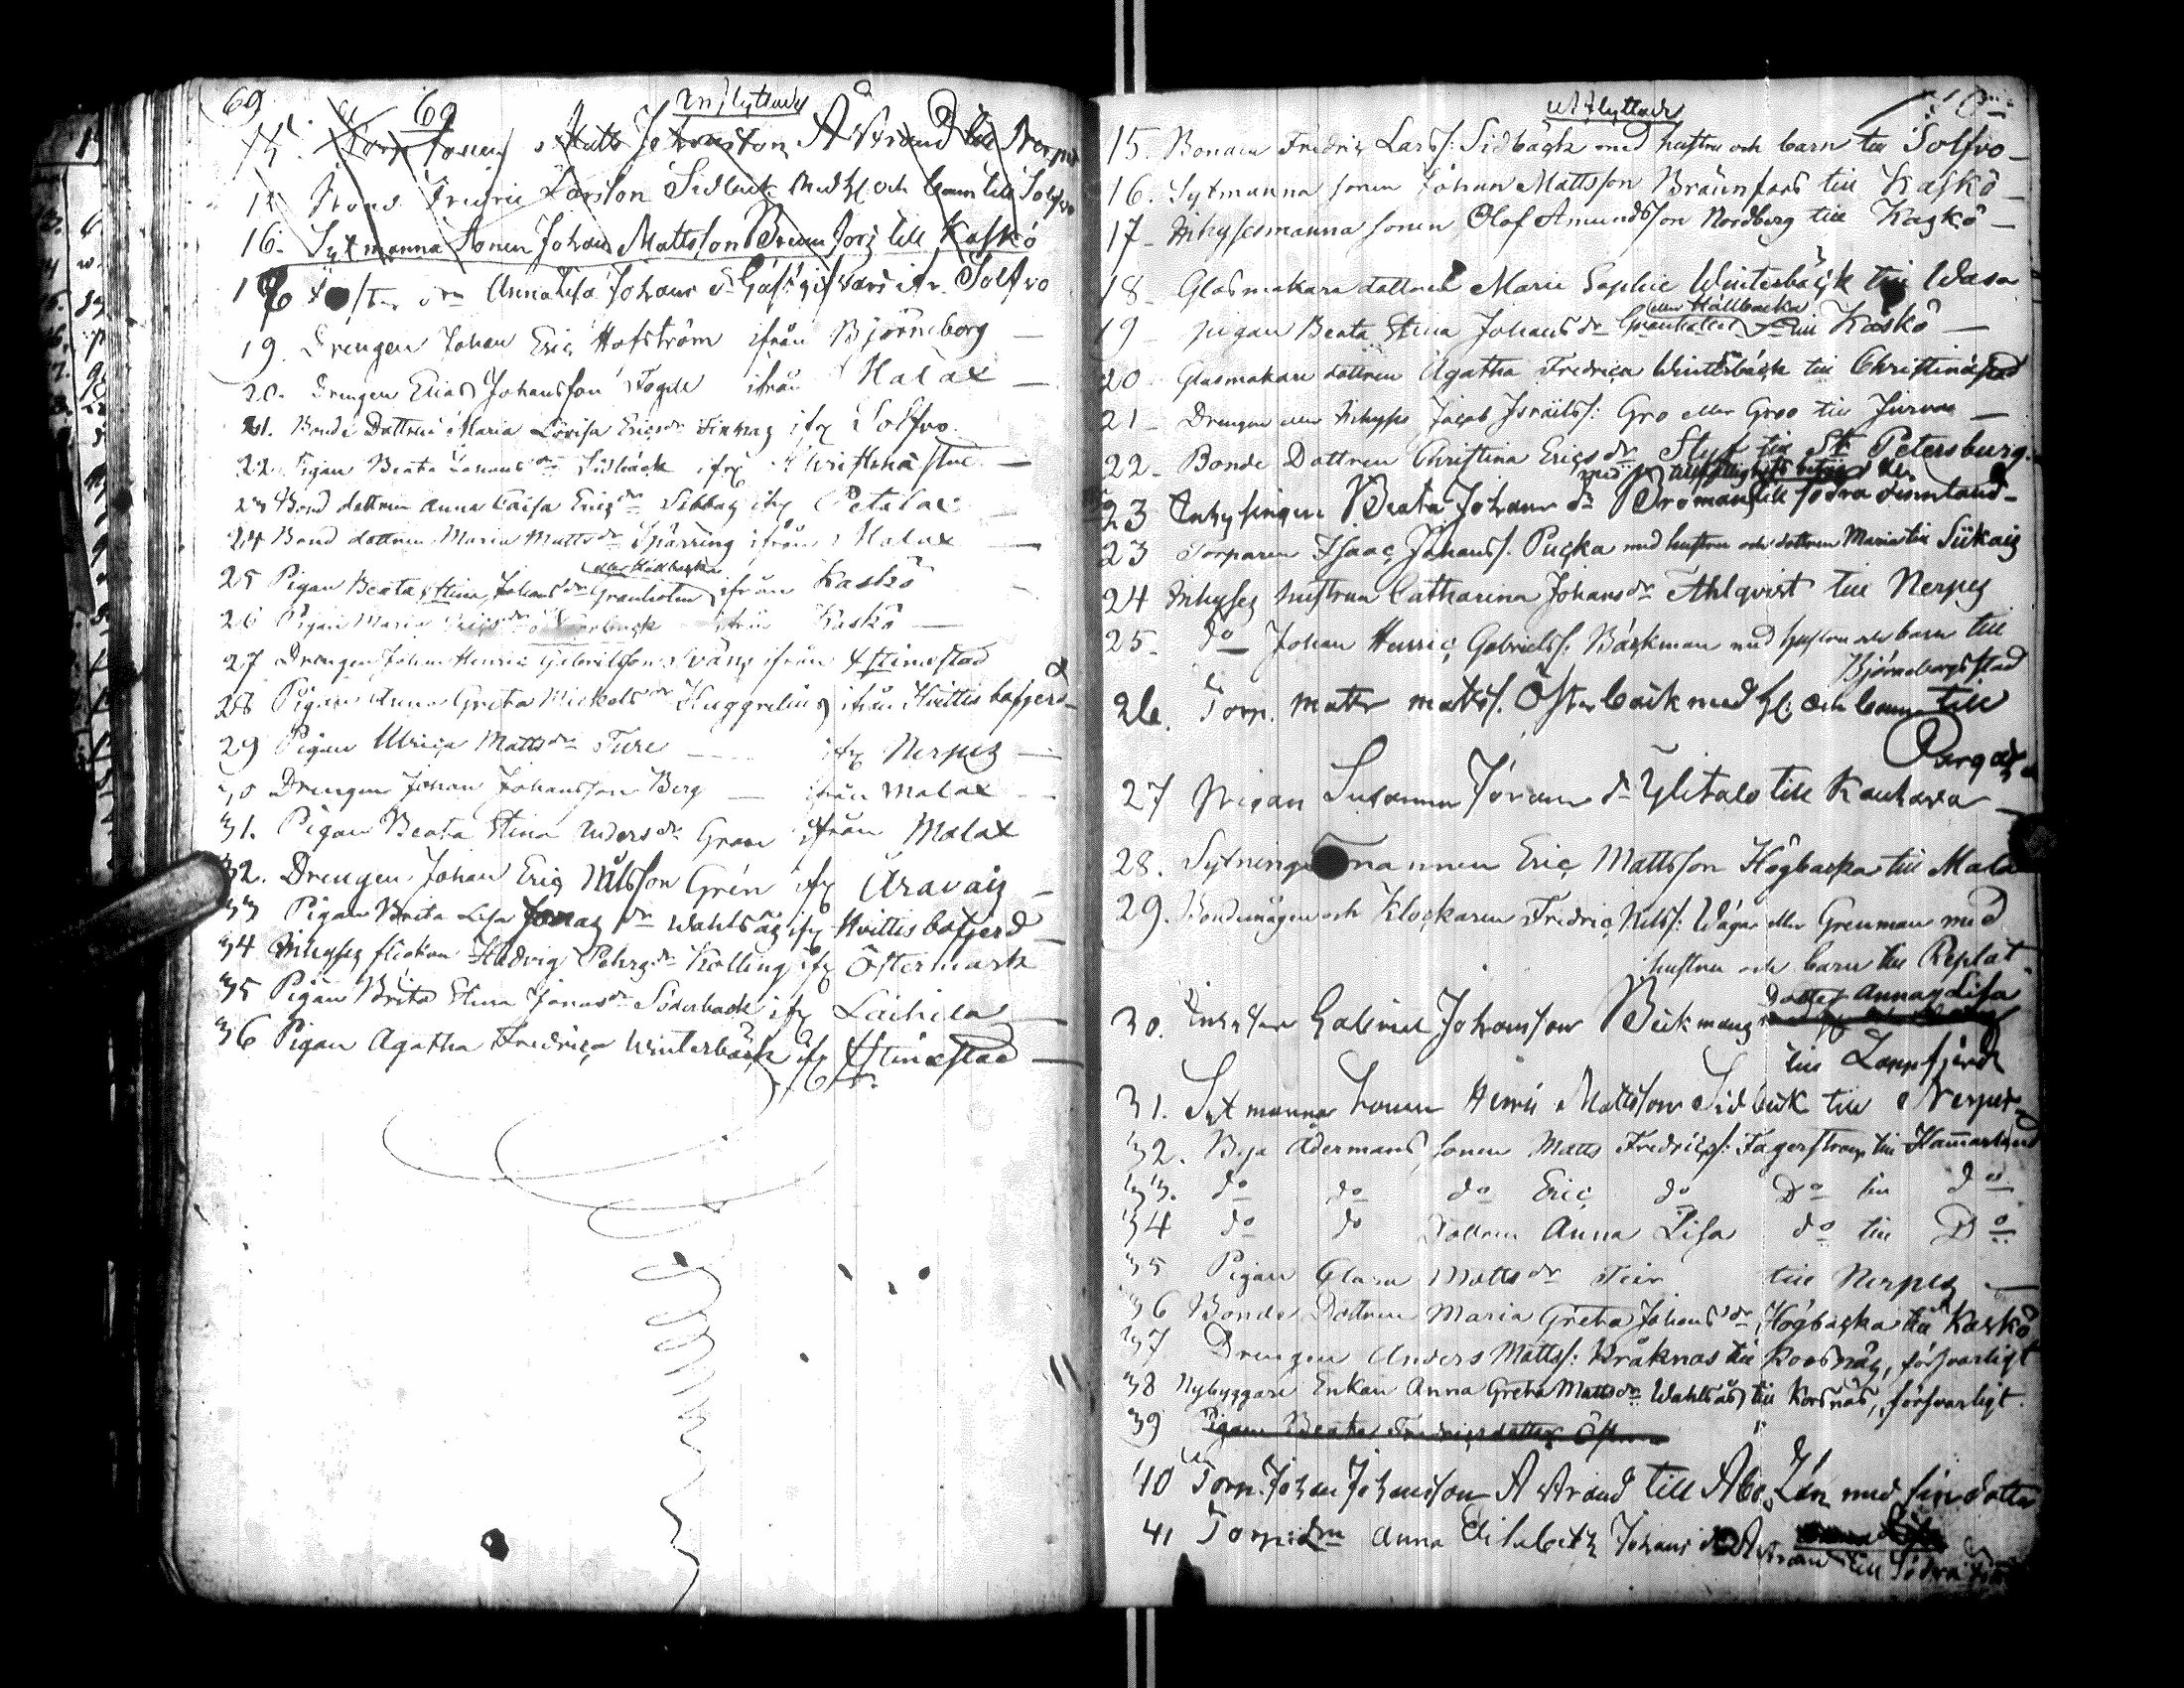 69
69
Inflyttade
14. Torp sonen Matts Johansson Åstrand till Nerpes
15 Bond. Fredric Larsson Sidbäck med h: och barn till Solfvo
16. Sytmanna Sonen Johan Mattsson till Kaskö
18 Anna Lisa Johans dr ifr. Solfvo
19. Drengen Johan Eric Hofström ifrån Björneborg —
20. Drengen Elias Johansson Fogel ifrån Malax —
21. Bonde Dottren Maria Lovisa Ericsdr Finnäs ifr Solfvo.
22. Pigan Beata Johans dr Sidbäck ifr Christinæstad —
23 Bond dottren Anna Caisa Erics dr Sebbas ifr Petalax —
24 Bond dottren Maria Matts dr Spärring ifrån Malax —
eller Hällbacka
25 Pigan Beata Stina Johans dr Granholm ifrån Kaskö
26 Pigan Maria ifrån Kaskö —
27 Drengen Johan Henric Gabrielsson Svans ifrån Xstinæstad
28 Pigan Anna Greta Mickels dr Huggrelius ifrån Hvittisbofjerd
29 Pigan Ulrica Matts dr Ture — ifr Nerpes —
30 Drengen Johan Johansson Berg — ifrån Malax —
31. Pigan Beata Stina Anders dr Gran ifrån Malax
32. Drengen Johan Eric Nilsson Grén ifr Åravais —
33 Pigan Brita Lisa Jonas dr Wahlsås ifr Hvittisbofjerd —
34 Inhyses flickan Hedvig Pehrs dr Kölling ifr Östermark
35 Pigan Brita Stina Jonas dr Söderback ifr Laihela —
36 Pigan Agatha Fredrica Winterbäck ifr Xstinæstad —
utflyttade
15. Bonden Fredric Larss: Sidbäck med hustru och barn till Solfvo —
16. Sytmanna sonen Johan Mattsson Braunfors till Kaskö —
17 — Inhysesmanna sonen Olof Amundsson Nordberg till Kaskö —
18 — Glasmakare dottren Marie Sophie Winterbäck till Wasa
eller Hällbacka
19 — pigan Beata Stina Johans dr Granholm till Kaskö —
20 Glasmakare dottren Agatha Fredrica Winterbäck till Christinæstad
21 — Drengen eller Inhyses Jacob Israels: Gro eller Groo till Jurva —
22 — Bonde Dottren Christina Erics dr Slyf till St Petersburg.
23 Inhysingen Beata Johans dr Broman till södra Finnland —
23 Torparen Isaac Johanss. Pucka med hustru och dottren Maria till Siikais
24 Inhyses hustrun Catharina Johans dr Ahlqvist till Nerpes
25 — do Johan Henric Gabriels: Bäckman med hustru och barn till
Björneborgs stad
26. Torp. Matts Matts. Österback med h: och barn till
Pargas
27 Pigan Susanna Jörans dr Ylitalo till Kauhava —
28. Sytningsmannen Eric Mattsson Högbacka till Mala
29. Bondemågen och Klockaren Fredric Nils: Wägar eller Grenman med
hustru och barn till Replot.
Dotter Anna Lisa
30. Inhyses Gabriel Johansson Bäckmans
till Lappfjärd
31. Sytmanna sonen Henric Mattsson Sidbäck till Nerpes
32. Bya Ådermans sonen Matts Fredrics: Fagerström till Hammarland
33. do do do Eric do Do till do
34 do do Dottren Anna Lisa do till Do
35 Pigan Clara Matts dr Teir till Nerpes —
36 Bonde Dottren Maria Greta Johans dr Högbacka till Kaskö
37 Drengen Anders Matts: Kråknäs till Korsnäs, försvarligt
38 Nybyggare Enkan Anna Greta Matts dr Wahlsås till Korsnäs, försvarligt.
39 Pigan Beata Fredricsdotter
40 Torp. Johan Johansson Åstrand till Åbo Län med sin dotter
41 Torp: dn Anna Elisabeth Johans dr Åstrand till Södra